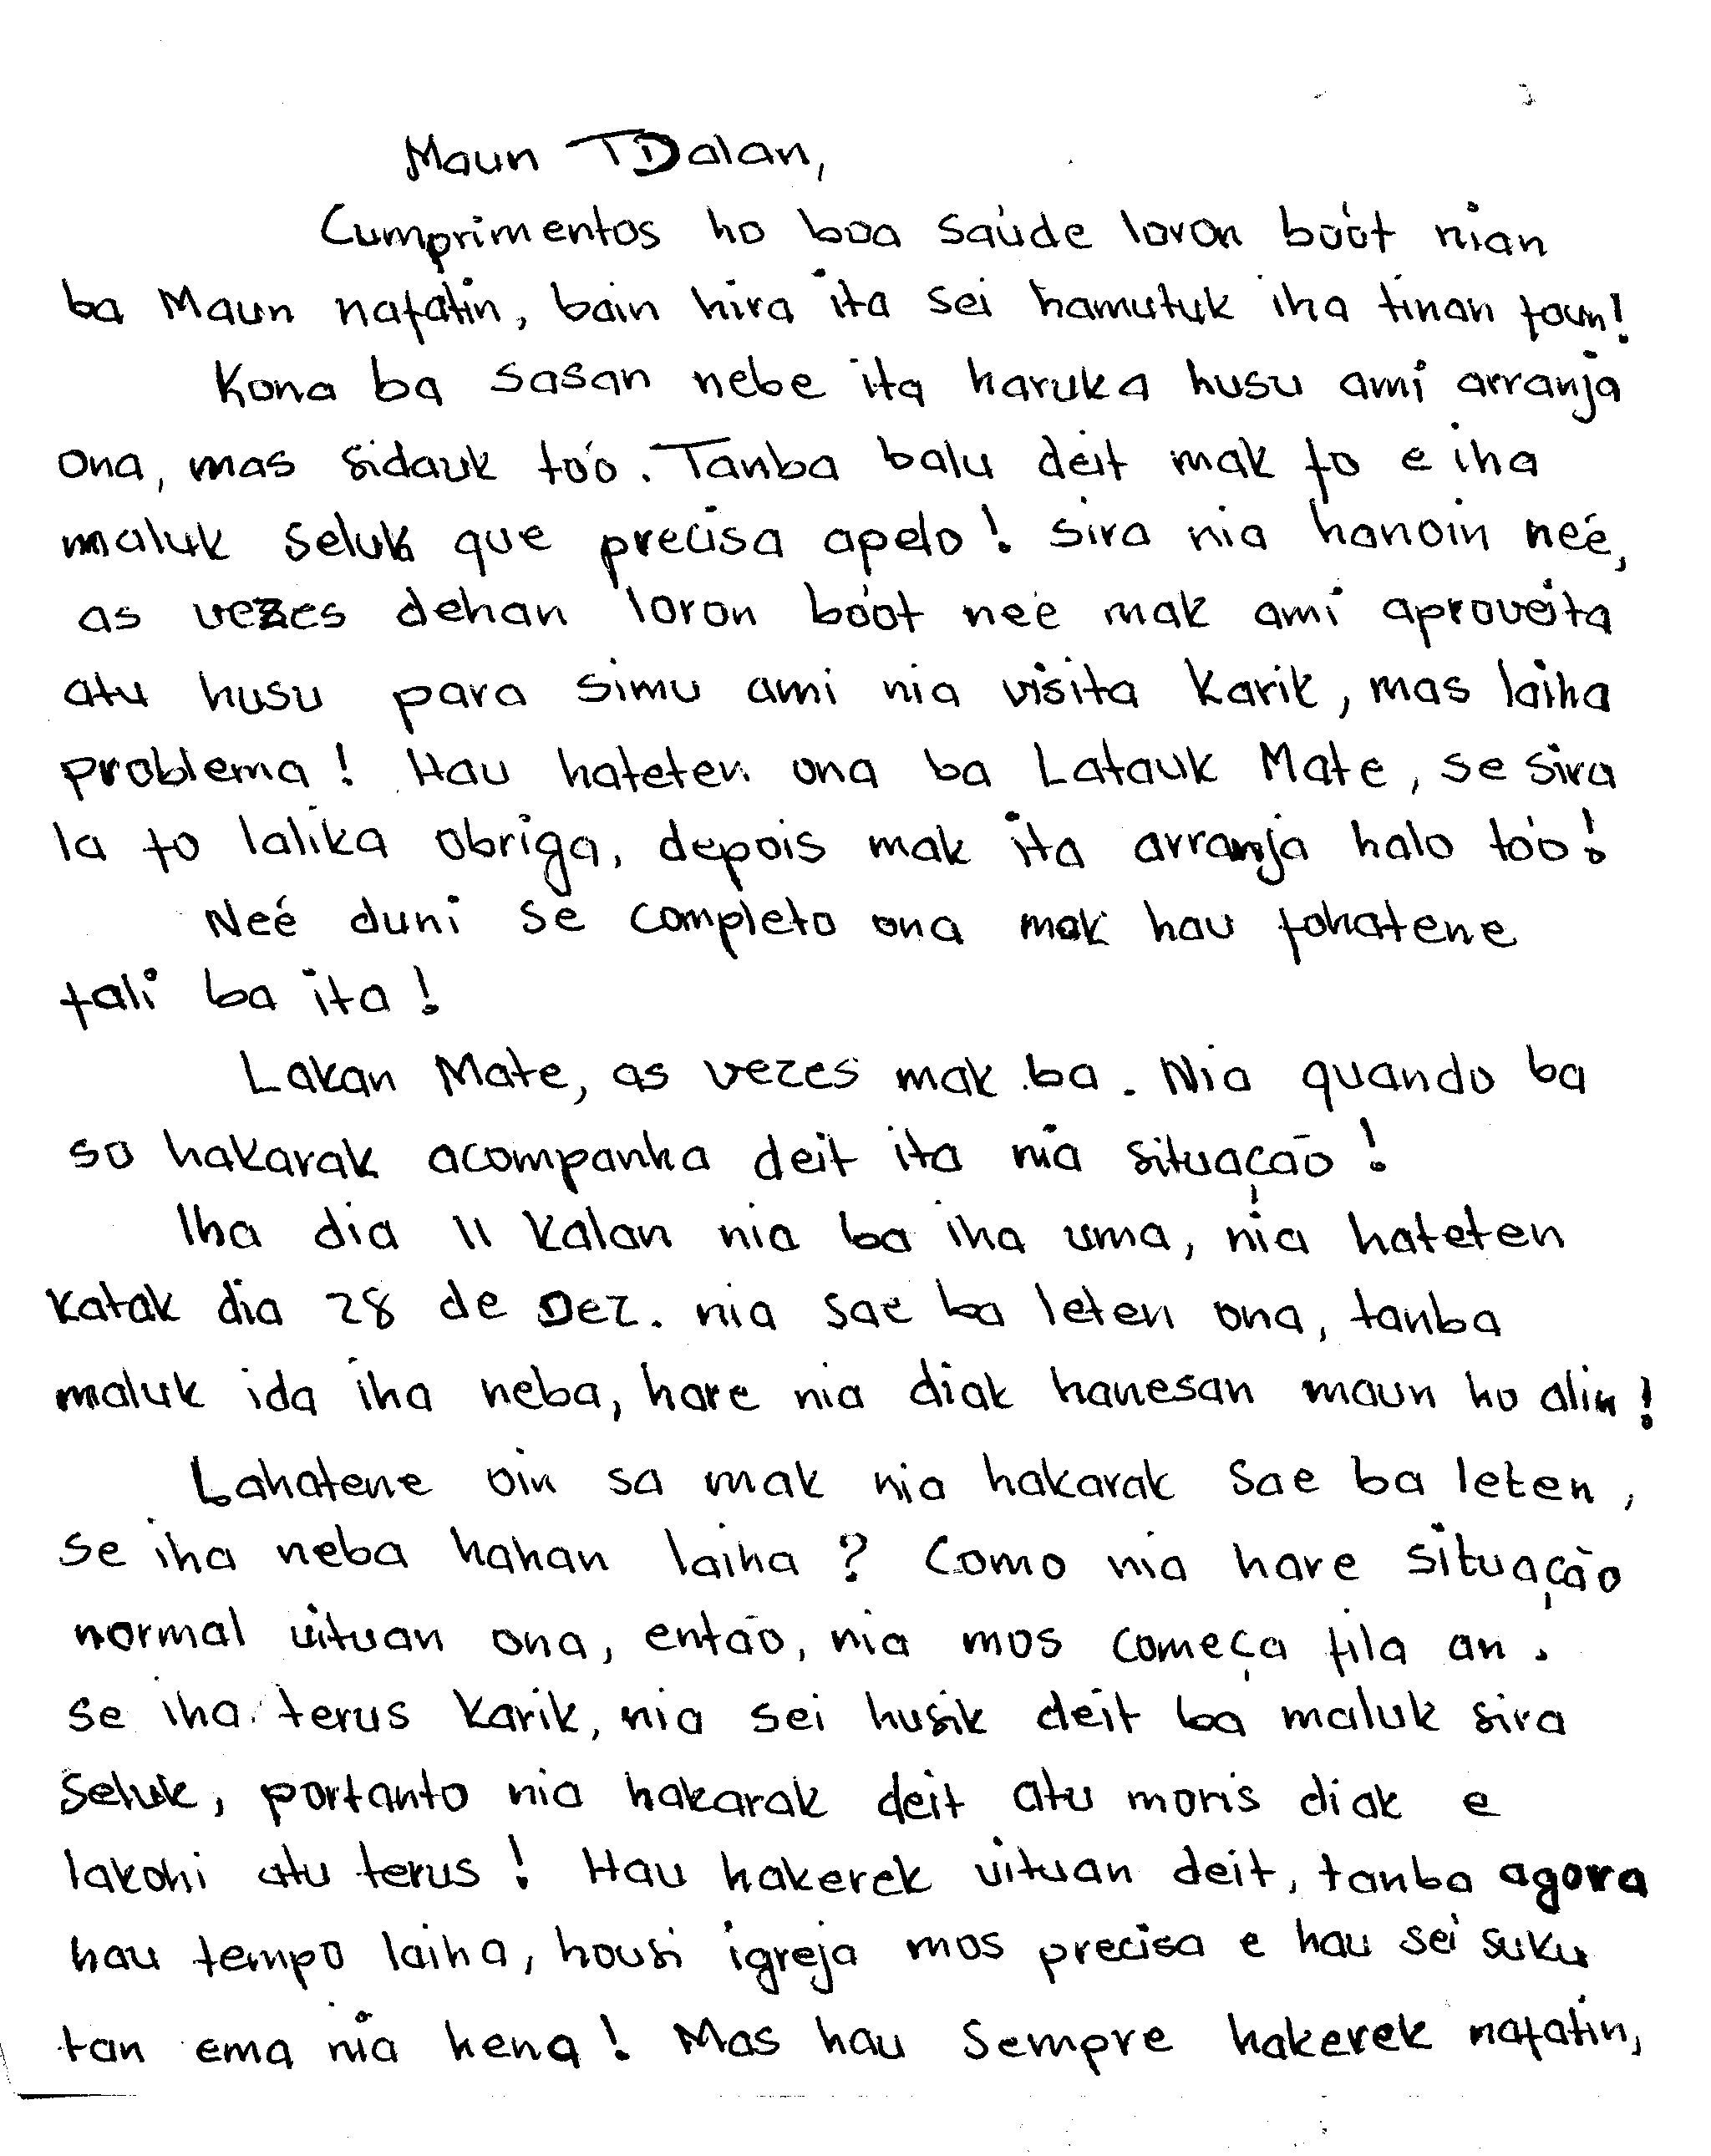 Maun TDalan,
Cumprimentos ho boa saúde loron boót nian
ba Maun nafatin, bain hira ita sei hamutuk iha tinan foun!
Kona ba sasan nebe ita haruka husu ami arranja
ona, mas sidauk tóo. Tanba balu deit mak fo e iha
maluk seluk que precisa apelo! Sira nia hanoin neé,
as vezes dehan loron boót neé mak ami aproveita
atu husu para simu ami nia visita karik, mas laiha
problema! Hau hateten ona ba Latauk Mate, se sira
la fo lalika obriga, depois mak ita arranja halo tóo!
Neé duni se completo ona mak hau fohatene
fali ba ita!
Lakan Mate, as vezes mak ba. Nia quando ba
so hakarak acompanha deit ita nia situação!
Iha dia 11 kalan nia ba iha uma, nia hateten
katak dia 28 de Dez. nia sae ba leten ona, tanba
maluk ida iha neba, hare nia diak hanesan maun ho alin!
Lahatene oin sa mak nia hakarak sae ba leten,
se iha neba hahan laiha? Como nia hare situação
normal uituan ona, então, nia mos começa fila an.
se iha terus karik, nia sei husik deit ba maluk sira
seluk, portanto nia hakarak deit atu moris diak e
lakohi atu terus! Hau hakerek uituan deit, tanba agora
hau tempo laiha, housi igreja mos precisa e hau sei suku
tan ema nia hena! Mas hau sempre hakerek nafatin,